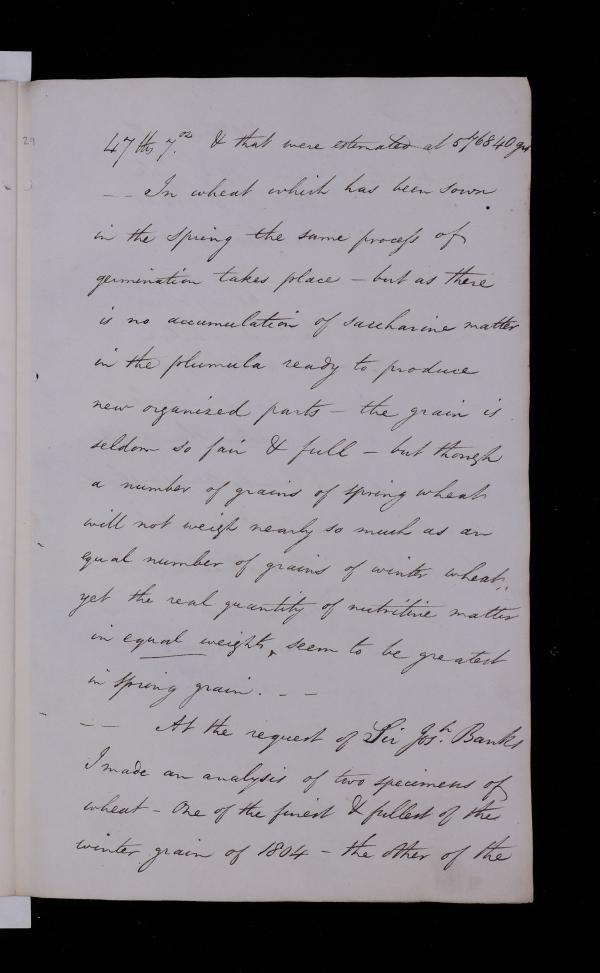 29
47 lbs 7.oz & that were estimated at 576840 grs
— — In wheat which has been sown
in the spring the same process of
germination takes place – but as there
is no accumulation of saccharine matter
in the plumula ready to produce
new organized parts – the grain is
seldom so fair & full – but though
a number of grains of spring wheat
will not weigh nearly so much as an
equal number of grains of winter wheat,
yet the real quantity of nutritive matter
in equal weights, seem to be greatest
in spring grain. – –
— — At the request of Sir Josh. Banks
I made an analysis of two specimens of
wheat – One of the finest & fullest of the
winter grain of 1804 – the other of the